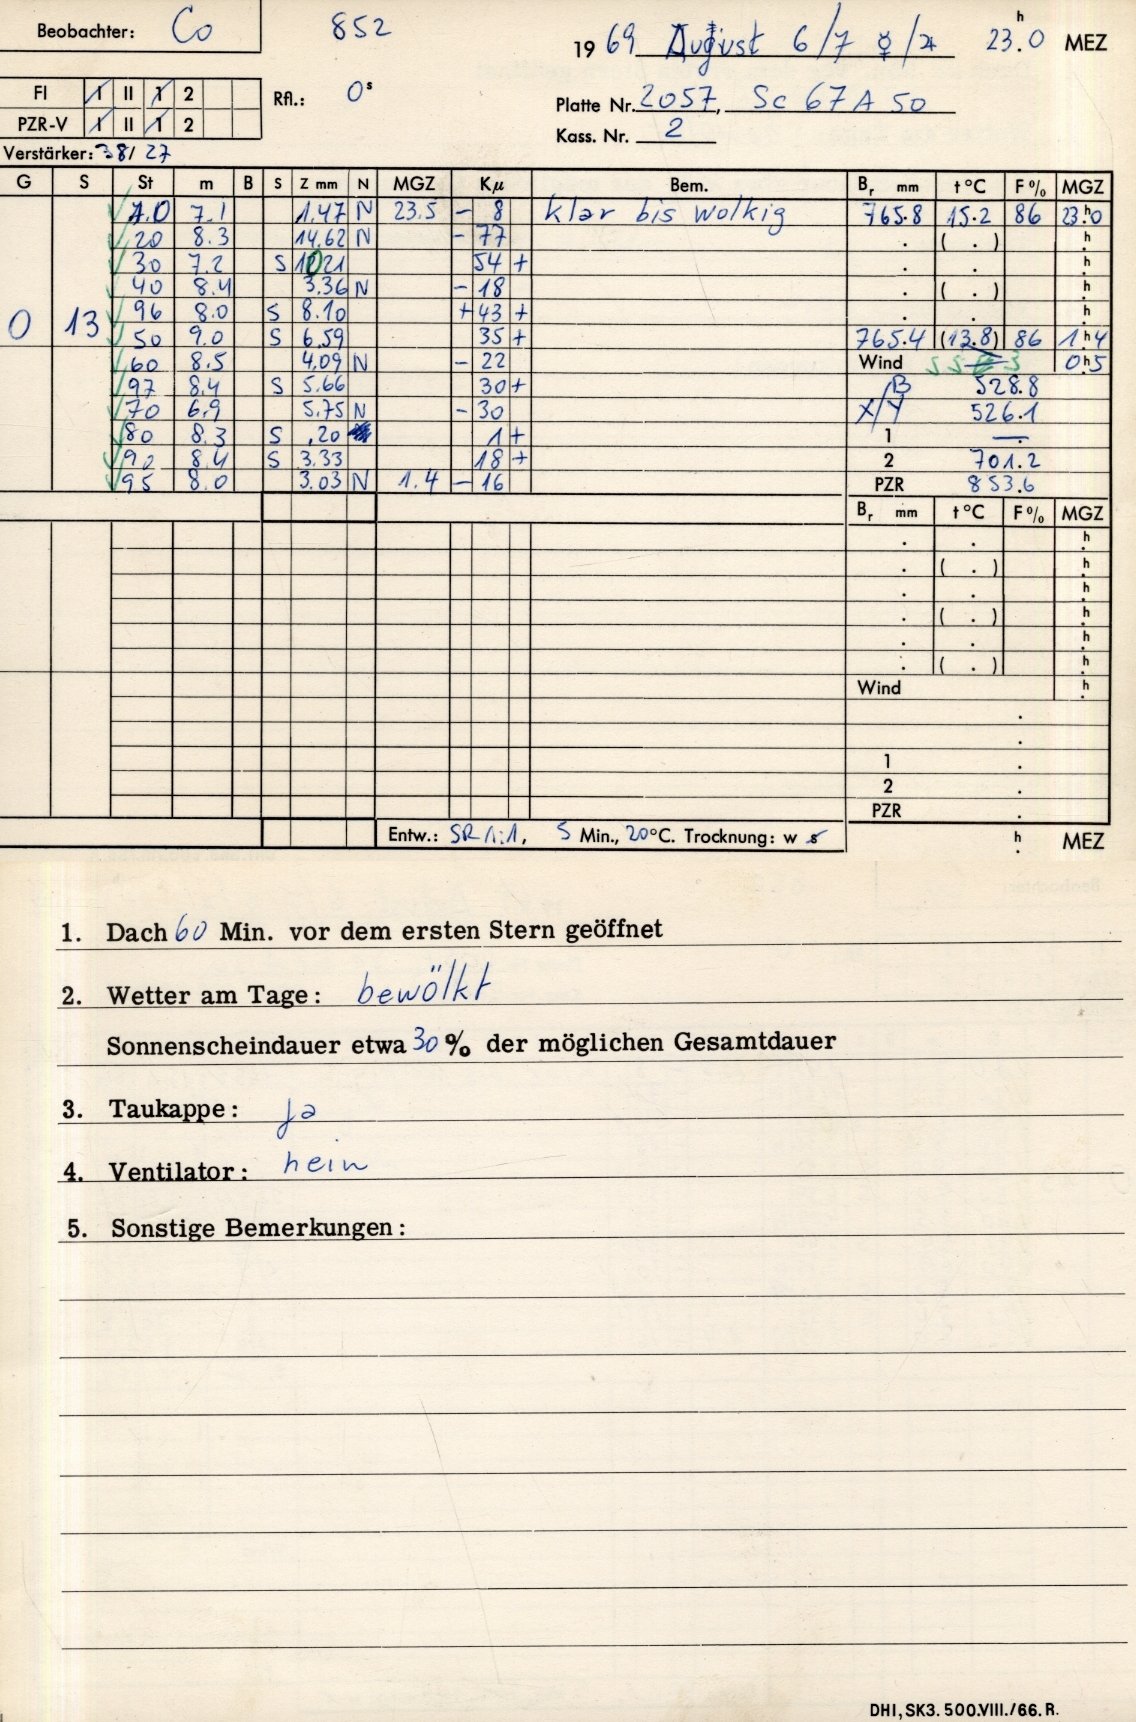 Beobachter: Co 852 1969 August 6/7 ☿/♃ 23.0 h MEZ
FI I II 1 2 Rfl.: 0s Platte Nr. 2057, Sc 67 A 50
PZR-V I II 1 2 Kass. Nr. 2
Verstärker: 38/27
G S St m B S Z mm N MGZ Kµ Bem. Br mm t°C F% MGZ
10 7.1 1.47 N 23.5 - 8 klar bis wolkig 765.8 15.2 86 23.h0
20 8.3 14.62 N - 77 . ( . ) h
30 7.2 S 10 21 54 + . . h
40 8.4 3.36 N - 18 . ( . ) h
0 13 96 8.0 S 8.10 + 43 + . . h
50 9.0 S 6.59 35 + 765.4 (13.8) 86 1.h4
60 8.5 4.09 N - 22 Wind 3 0.h5
97 8.4 S 5.66 30 + B 528.8
70 6.9 5.75 N - 30 X/Y 526.1
80 8.3 S .20 1 + 1 —
90 8.4 S 3.33 18 + 2 701.2
95 8.0 3.03 N 1.4 - 16 PZR 853.6
Br mm t°C F% MGZ
. . h
. ( . ) h
. . h
. ( . ) h
. . h
. ( . ) h
Wind h
.
.
1 .
2 .
PZR .
Entw.: SR 1:1, 5 Min., 20°C. Trocknung: w s h MEZ
1. Dach 60 Min. vor dem ersten Stern geöffnet
2. Wetter am Tage: bewölkt
Sonnenscheindauer etwa 30 % der möglichen Gesamtdauer
3. Taukappe: ja
4. Ventilator: nein
5. Sonstige Bemerkungen:
DHI, SK3. 500.VIII./66. R.